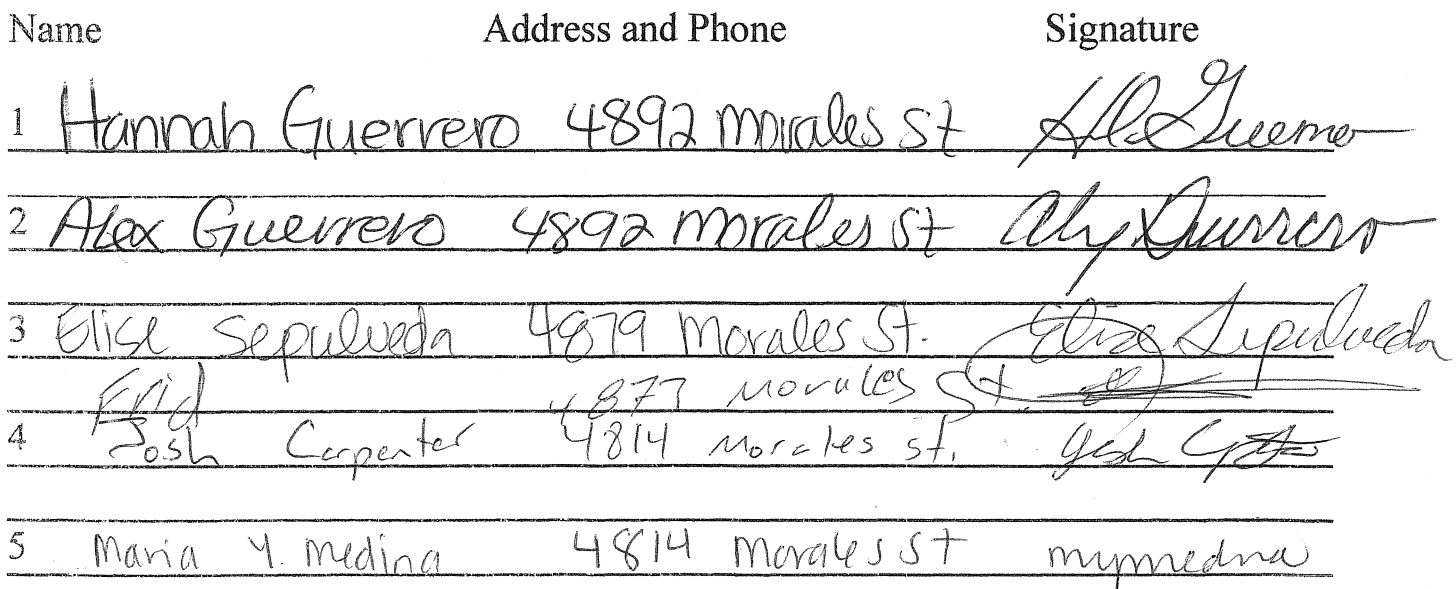 Name Address and Phone Signature
1 Hannah Guerrero 4892 Morales St H Guerrero
2 Alex Guerrero 4892 Morales St Alex Guerrero
3 Elise Sepulveda 4879 Morales St. Elise Sepulveda
Frid 4877 Morales St.
4 Josh Carpenter 4814 Morales St.
5 Maria Y. Medina 4814 Morales St mymedina